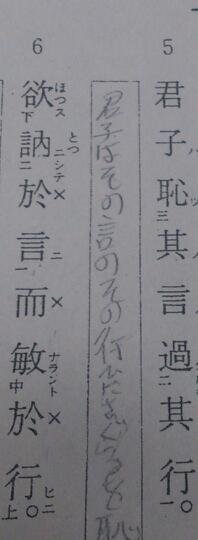 5
君子ハ恥ヅ三其ノ言ノ過グルヲ二其ノ行ヲ一。
君子はその言のその行ひに過ぐるを恥
6
欲ほつス下訥とつニシテ二於言ニ一而敏ナラント中於行ヒニ上。